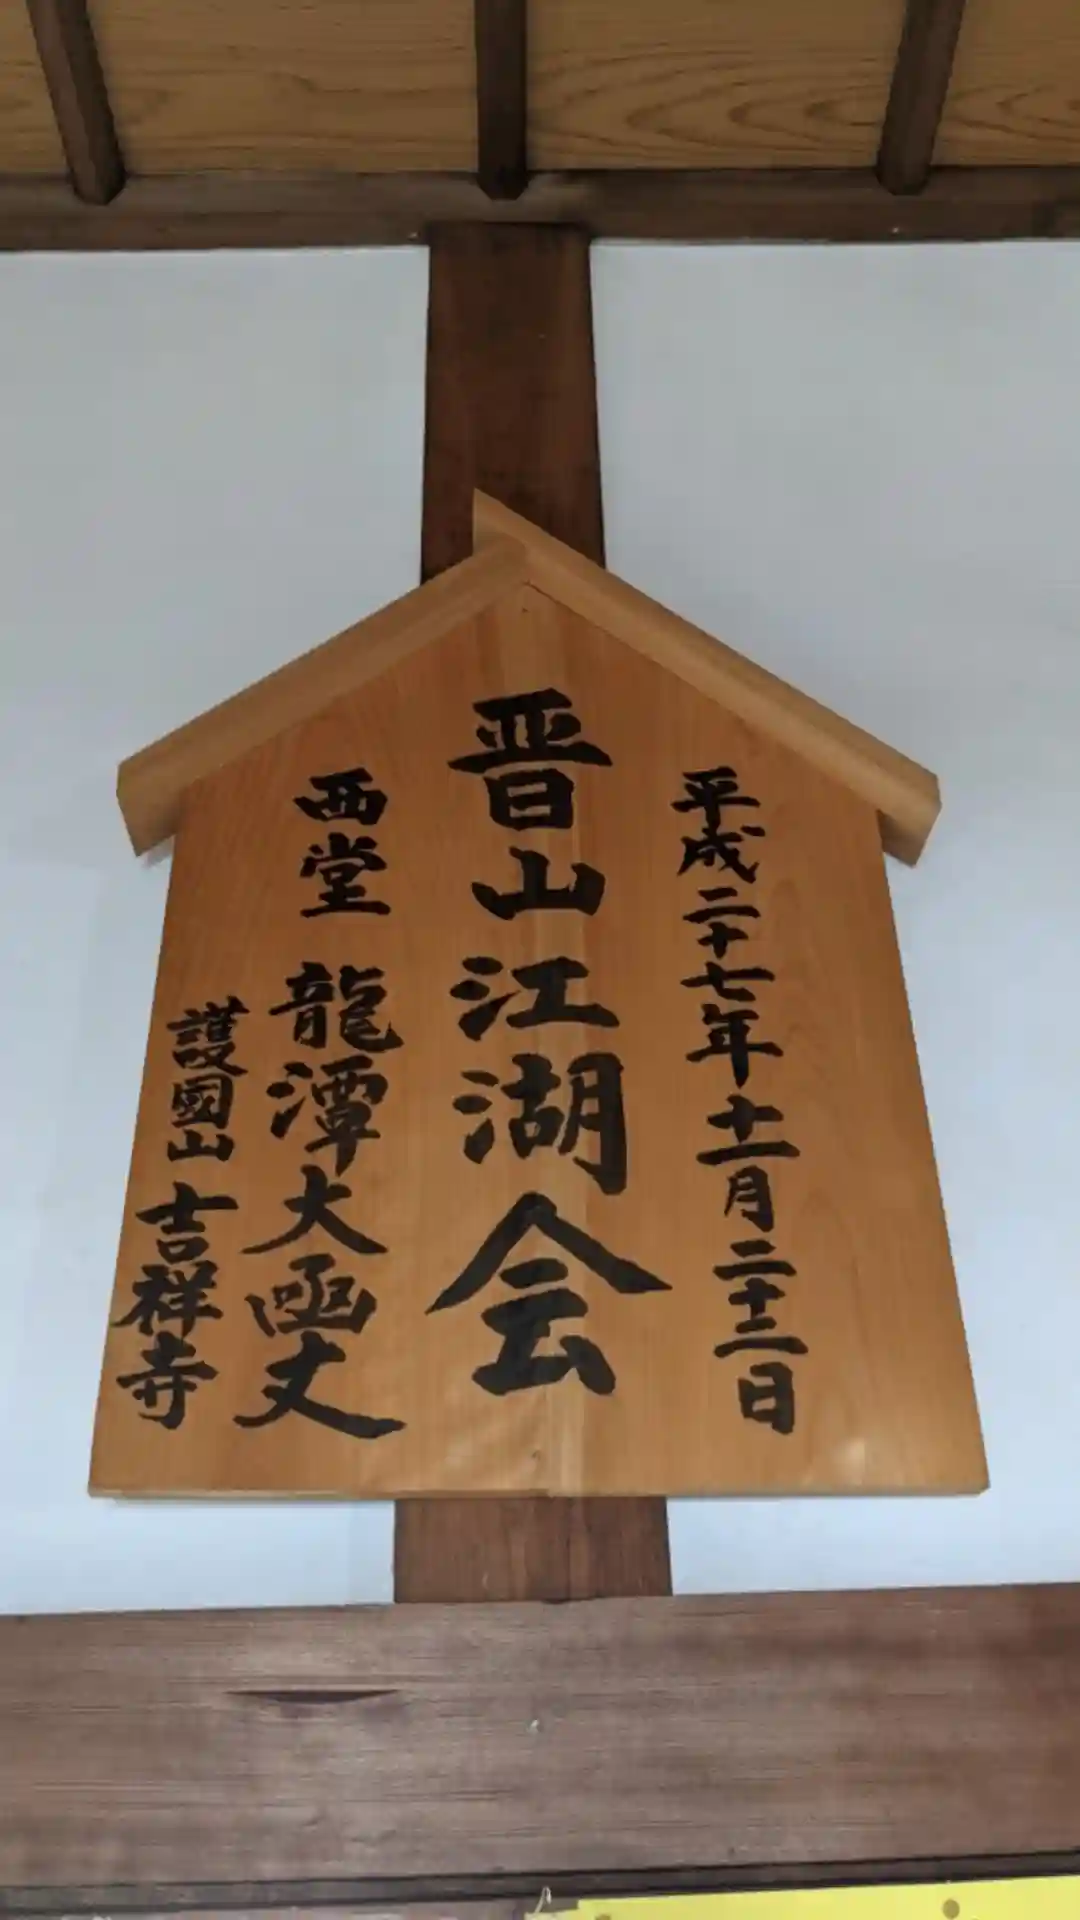 平成二十七年十一月二十二日
晋山江湖会
西堂 龍潭大凾丈
護國山 吉祥寺